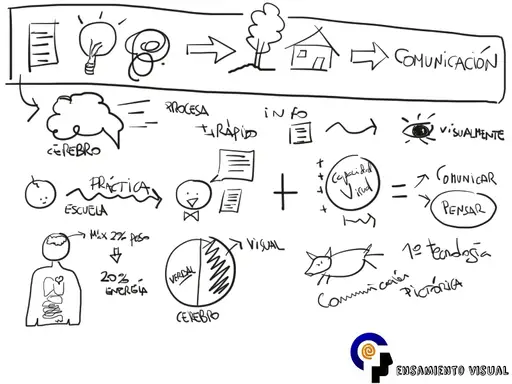 COMUNICACIÓN
CEREBRO
PROCESA
++ RÁPIDO
INFO
VISUALMENTE
PRÁCTICA
ESCUELA
+
capacidad
Visual
=
COMUNICAR
PENSAR
MAX 2% PESO
20%
ENERGÍA
VERBAL
VISUAL
CEREBRO
1ª tecnología
Comunicación
PICTÓRICA
ENSAMIENTO VISUAL